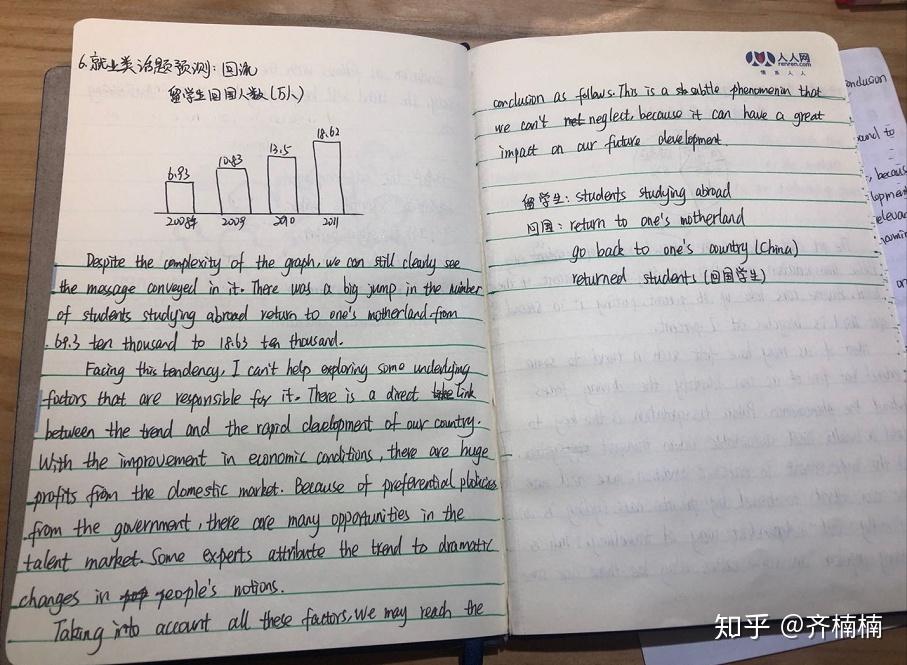 6.就业类话题预测：回流
留学生回国人数(万人)
6.93
10.83
13.5
18.62
2008年
2009
2010
2011
Despite the complexity of the graph, we can still clearly see
the message conveyed in it. There was a big jump in the number
of students studying abroad return to one's motherland from
69.3 ten thousand to 18.63 ten thousand.
Facing this tendency, I can't help exploring some underlying
factors that are responsible for it. There is a direct link
between the trend and the rapid development of our country.
With the improvement in economic conditions, there are huge
profits from the domestic market. Because of preferential policies
from the government, there are many opportunities in the
talent market. Some experts attribute the trend to dramatic
changes in people's notions.
Taking into account all these factors, we may reach the
人人网
renren.com
conclusion as follows. This is a subtle phenomenin that
we can't neglect, because it can have a great
impact on our future development.
留学生: students studying abroad
回国: return to one's motherland
go back to one's country (China)
returned students (回国学生)
onclusion
ound to
, becaus
lopment
elevan
知乎 @齐楠楠